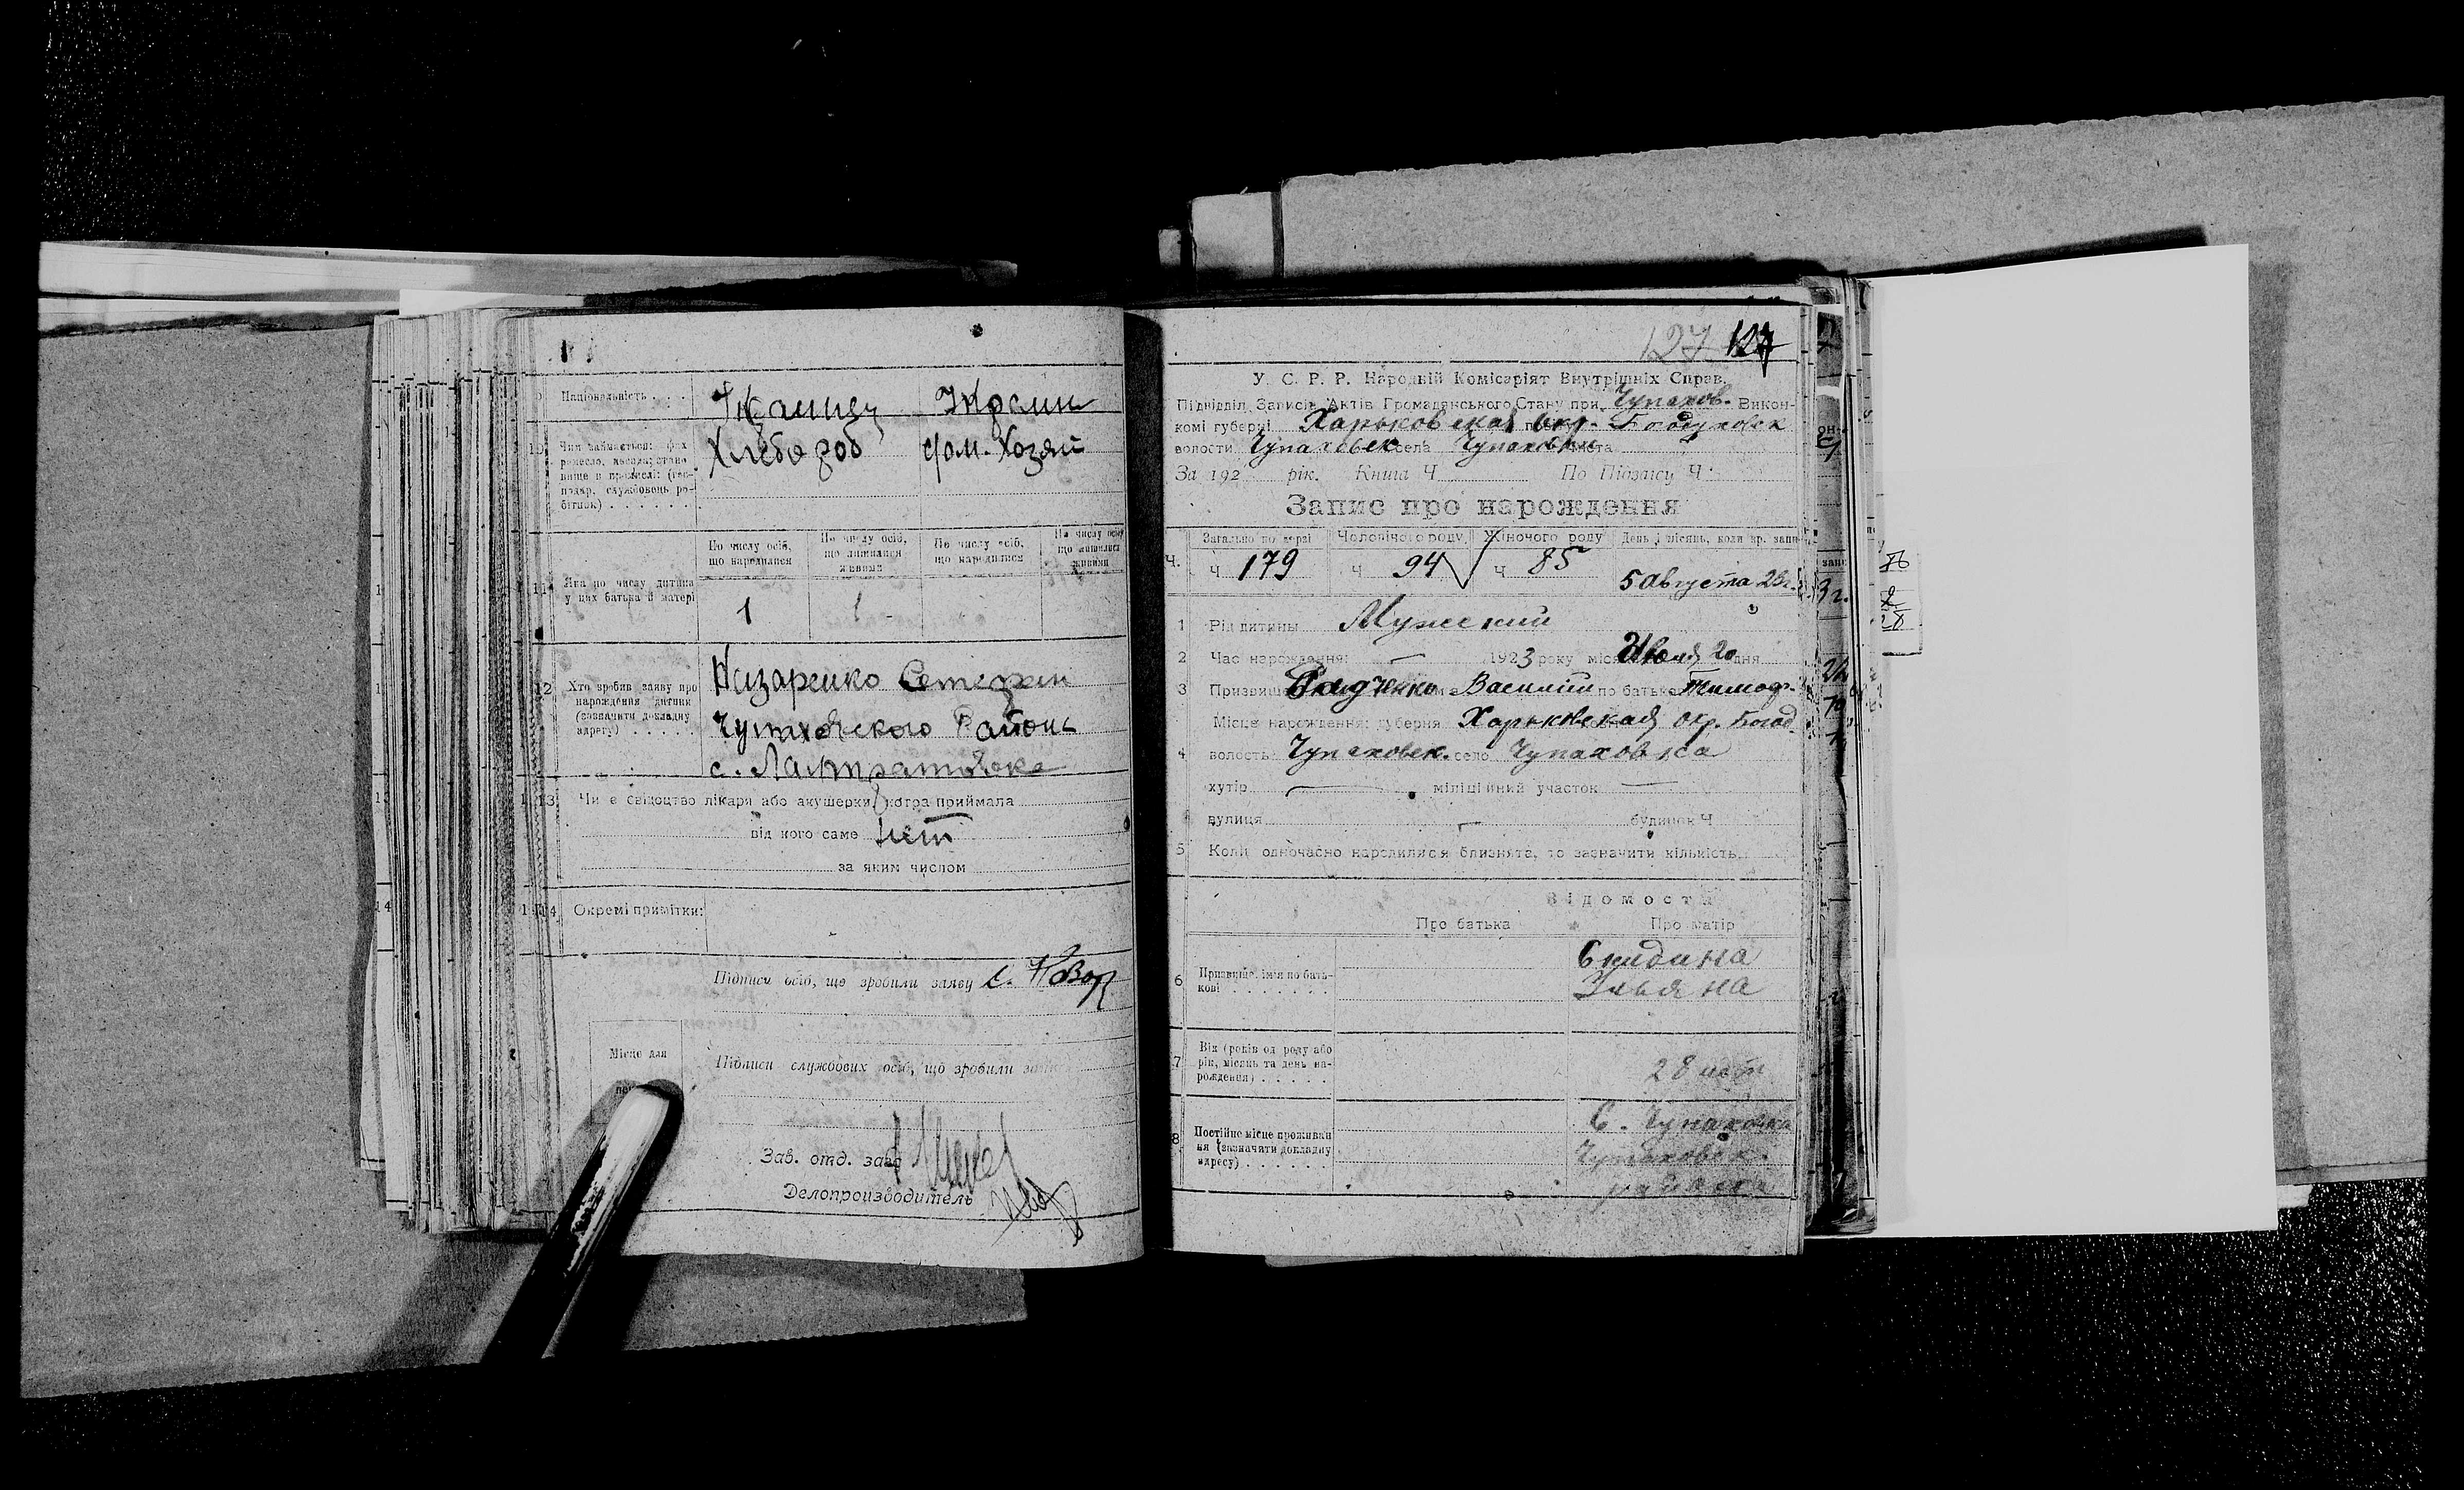 Національність . . . Украинец Украин
10 Чим займається: фах ремесло, посада; стано-
вище в промислі: (гос-
подар, службовець ро-
бітник) . . . . . . Хлебороб дом. Хозяй
По числу осіб, що народилися По числу осіб, що лишилися живими По числу осіб, що народилися По числу осіб що лишилися живими
11 Яка по числу дитина у цих батька й матері 1 1
12 Хто зробив заяву про нарождення дитини (зазначити докладну адресу) . . . . .
Назаренко Стефан
Района
с.
13 Чи є свідоцтво лікаря або акушерки, котра приймала
від кого саме нет
за яким числом
14 Окремі примітки:
Підписи осіб, що зробили заяву С.
Місце для
Підписи службових осіб, що зробили запис
Зав. отд. загс
Делопроизводитель
127 127
У. С. Р. Р. Народній Комісаріят Внутрішніх Справ.
Підвідділ Записів Актів Громадянського Стану при Чупахов. Викон-
комі губерні Харьковская окр. Богодуховск
волости Чупаховск села Чупаховки міста
За 192 рік. Книга Ч По Підпису Ч
Запис про нарождення
Загально по черзі Чоловічого роду Жіночого роду День і місяць, коли зр. запис
Ч. Ч 179 Ч 94 Ч 85 5 Августа 23 г.
1 Рід дитини Мужский
2 Час нарождення: — 1923 року міся Июля 20 дня
3 Призвище Радченко ім'я Василий по батькові Тимоф.
Місце нарождення: губерня Харьковская окр. Богод.
4 волость Чупаховск. село Чупаховка
хутір — міліційний участок —
вулиця — будинок Ч
5 Коли одночасно народилися близнята, то зазначити кількість
Відомости
Про батька Про матір
6 Призвище, ім'я по бать-
кові . . . . . . . .
Ульяна
7 Вік (років од роду або рік, місяць та день на-
рождення) . . . . . 28 лет
8 Постійне місце проживан
ня (зазначити докладну адресу) . . . . . .
С. Чупаховка
Чупаховск.
района